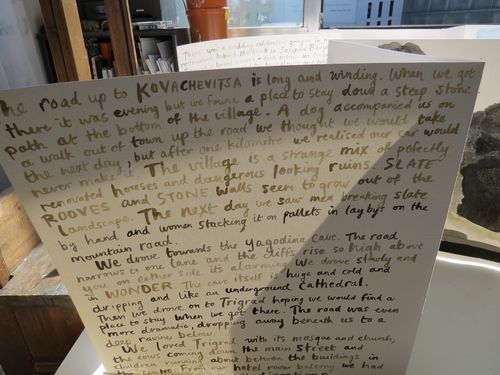 There was a wedding celebration going on in
The road up to KOVACHEVITSA is long and winding. When we got
there it was evening but we found a place to stay down a steep stone
path at the bottom of the village. A dog accompanied us on
a walk out of town up the road we thought we would take
the next day, but after one kilometre we realised our car would
never make it. The village is a strange mix of pefectly
renovated houses and dangerous looking ruins. SLATE
ROOVES and STONE walls seem to grow out of the
landscape. The next day we saw men breaking slate
by hand and women stacking it on pallets in lay bys on the
mountain road.
We drove towards the Yagodina Cave. The road
narrows to one lane and the cliffs rise so high above
you on either side it's alarming. We drove slowly and
in WONDER. The cave itself is huge and cold and
dripping and like an underground cathedral.
Then we drove on to Trigrad hoping we would find a
place to stay when we got there. The road was even
more dramatic, dropping away beneath us to a
deep ravine below.
We loved Trigrad with its mosque and church,
the cows coming down the main street and
children running about between the buildings in
the centre. From our hotel room balcony we had